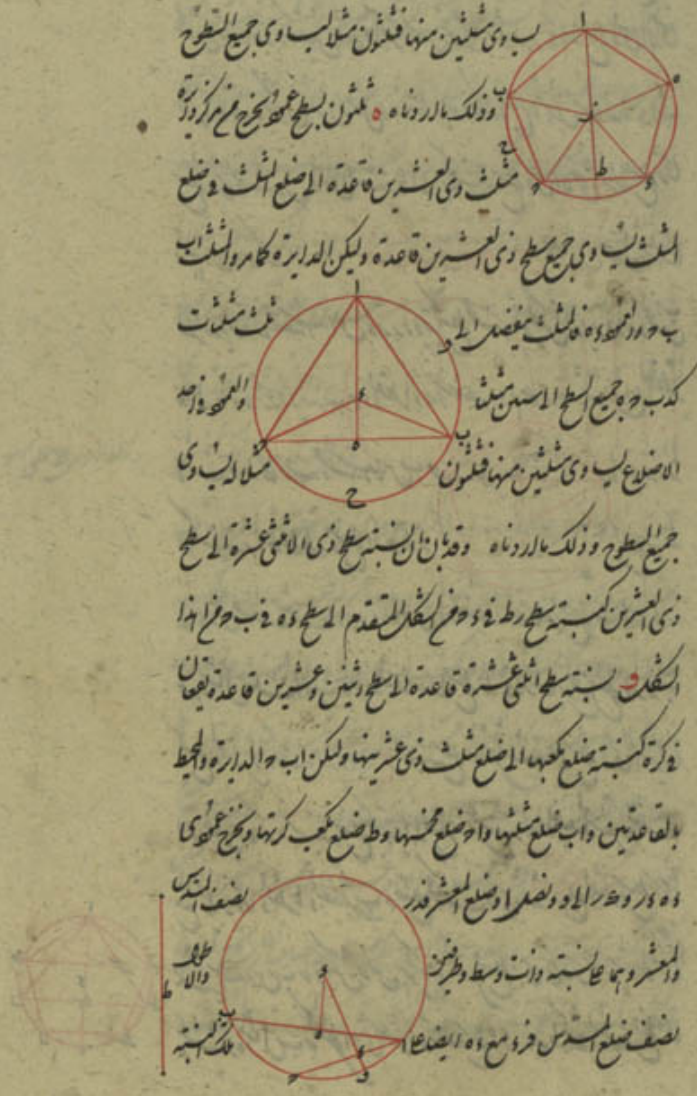 يساوى مثلثين منها فثلثون مثلا يساوى جميع السطوح
وذلك ما اردناه ه ثلثون سطح عمود يخرج من مركز دايرة
مثلث ذى العشرين قاعدة الى ضلع المثلث فى ضلع
المثلث يساوى جميع سطح ذى العشرين قاعدة وليكن الدايرة كما مر والمثلث اب
ب ح والعمود ءه فالمثلث ينفصل الى ثلث مثلثات
كدب ح جميع السطح الى مثلثا والعمود فى احد
الاضلاع يساوى مثلثين منها فثلثون مثلا له يساوى
جميع السطوح وذلك ما اردناه وقد بان ان نسبة سطح ذى الاثنى عشرة الى سطح
ذى العشرين كنسبة سطح رط فى ءح من الشكل المتقدم الى سطح ءه فى ب ح من هذا
الشكل و نسبة سطح اثنى عشرة قاعدة الى سطح عشرين قاعدة يقعان
فى كرة كنسبة ضلع مكعبها الى ضلع مثلث ذى عشرينها وليكن اب ح الدايرة المحيط
بالقاعدتين واب ضلع مثلثها واح ضلع مخمسها وط ضلع مكعب كرتها ونخرج عمودى
ءه ءر الى و ونصل او ضلع المعشر نصف المسدس
والمعشر وهما على نسبة ذات وسط وطرفين والاطول
نصف ضلع المسدس مع ءه ايضا على تلك النسبة